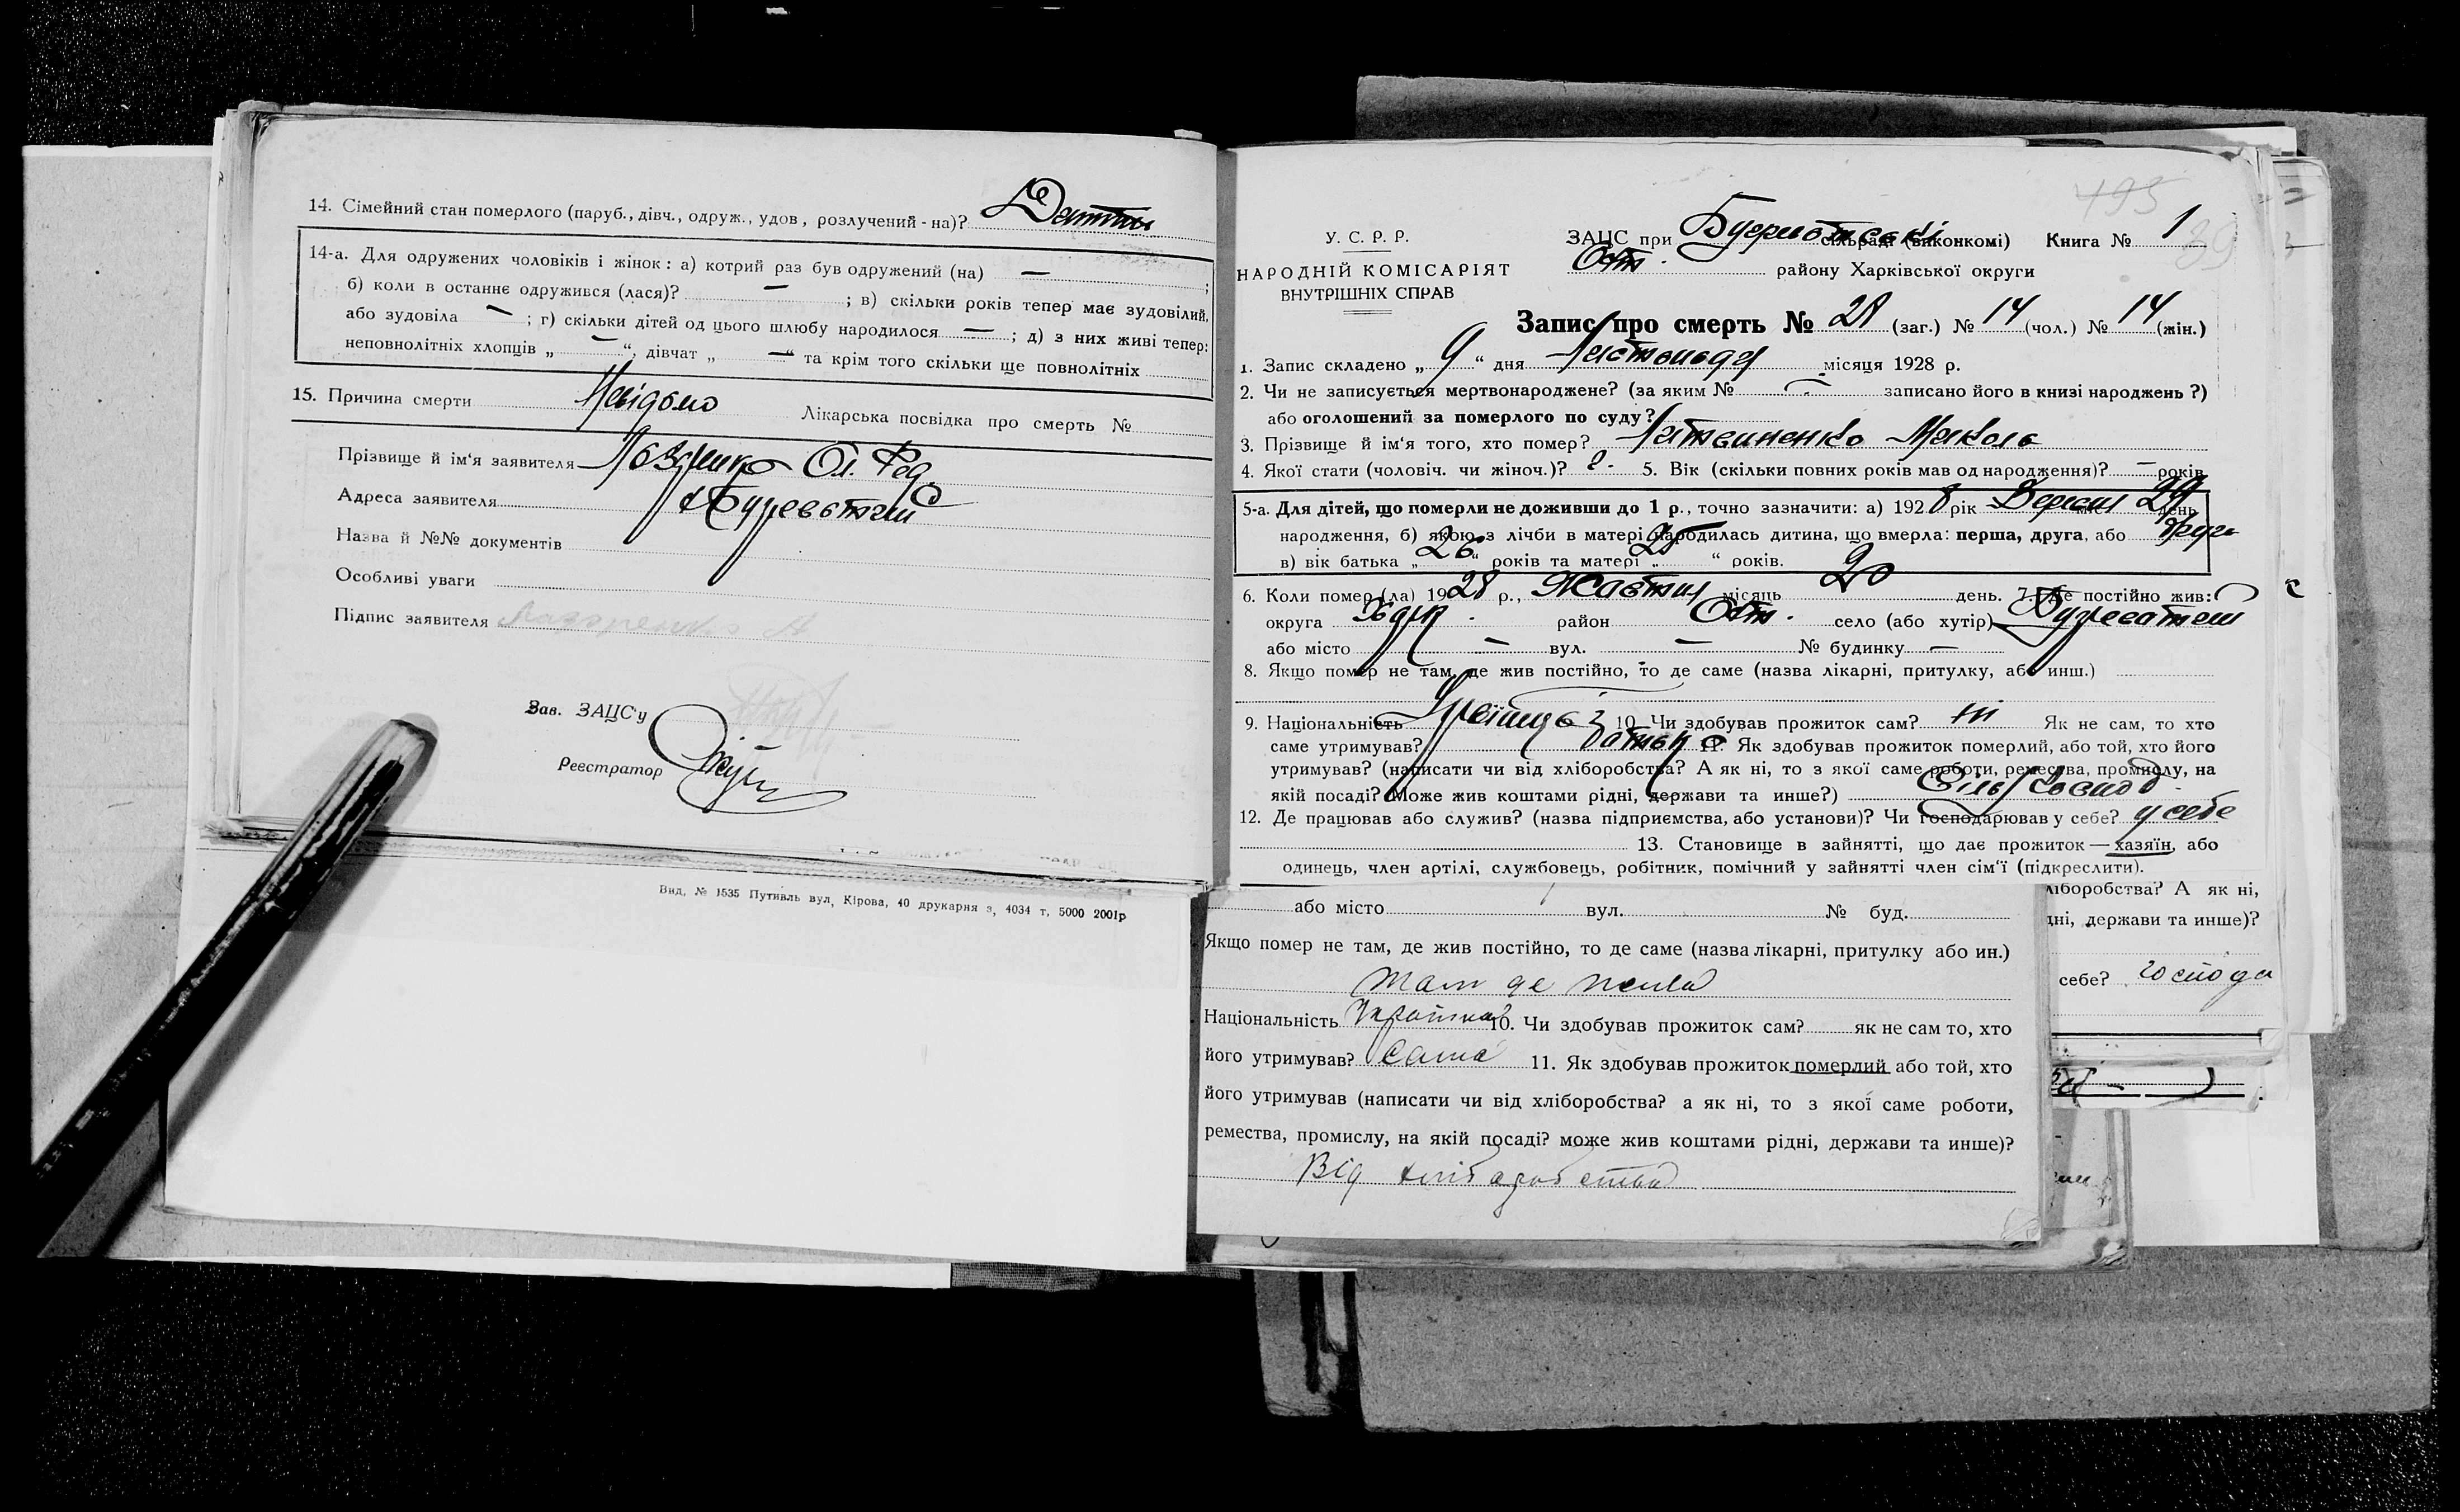 14. Сімейний стан померлого (паруб., дівч., одруж., удов, розлучений - на)?
14-а. Для одружених чоловіків і жінок: а) котрий раз був одружений (на) — ;
б) коли в останнє одружився (лася)? — ; в) скільки років тепер має зудовілий,
або зудовіла — ; г) скільки дітей од цього шлюбу народилося — ; д) з них живі тепер:
неповнолітніх хлопців „ — “, дівчат „ — “ та крім того скільки ще повнолітніх
15. Причина смерти Невідомо Лікарська посвідка про смерть №
Прізвище й ім‘я заявителя Ол. Фед.
Адреса заявителя
Назва й №№ документів
Особливі уваги
Підпис заявителя
Зав. ЗАЦС‘у
Реєстратор
Вид. № 1535 Путивль вул, Кірова, 40 друкарня з, 4034 т, 5000 2001р
495
39
У. С. Р. Р.
НАРОДНІЙ КОМІСАРІЯТ
ВНУТРІШНІХ СПРАВ
ЗАЦС при сільраді (виконкомі) Книга № 1
району Харківської округи
Запис про смерть № 28 (заг.) № 14 (чол.) № 14 (жін.)
1. Запис складено „ 9 “ дня Листопада місяця 1928 р.
2. Чи не записується мертвонароджене? (за яким № — записано його в книзі народжень ?)
або оголошений за померлого по суду?
3. Прізвище й ім‘я того, хто помер? Литвиненко Микола
4. Якої стати (чоловіч. чи жіноч.)? ч. 5. Вік (скільки повних років мав од народження)? — років
5-а. Для дітей, що померли не доживши до 1 р., точно зазначити: а) 192 8 рік Вересня міс. 29 день
народження, б) якою з лічби в матері народилась дитина, що вмерла: перша, друга, або друга
в) вік батька „ 26 “ років та матері „ “ років.
6. Коли помер (ла) 19 28 р., Жовтня місяць 20 день. 7. Де постійно жив:
округа Харк. район село (або хутір)
або місто — вул. — № будинку —
8. Якщо помер не там, де жив постійно, то де саме (назва лікарні, притулку, або инш.)
9. Національність 10. Чи здобував прожиток сам? ні Як не сам, то хто
саме утримував? батько 11. Як здобував прожиток померлий, або той, хто його
утримував? (написати чи від хліборобства? А як ні, то з якої саме роботи, ремества, промислу, на
якій посаді? Може жив коштами рідні, держави та инше?) Сільськ. Господ.
12. Де працював або служив? (назва підприємства, або установи)? Чи господарював у себе? у себе
13. Становище в зайнятті, що дає прожиток — хазяїн, або
одинець, член артілі, службовець, робітник, помічний у зайнятті член сім‘ї (підкреслити).
або місто вул. № буд.
Якщо помер не там, де жив постійно, то де саме (назва лікарні, притулку або ин.)
там де жила
Національність Українка 10. Чи здобував прожиток сам? як не сам то, хто
його утримував? сама 11. Як здобував прожиток померлий або той, хто
його утримував (написати чи від хліборобства? а як ні, то з якої саме роботи,
ремества, промислу, на якій посаді? може жив коштами рідні, держави та инше)?
Від хліборобства
ліборобства? А як ні,
дні, держави та инше)?
себе? господа